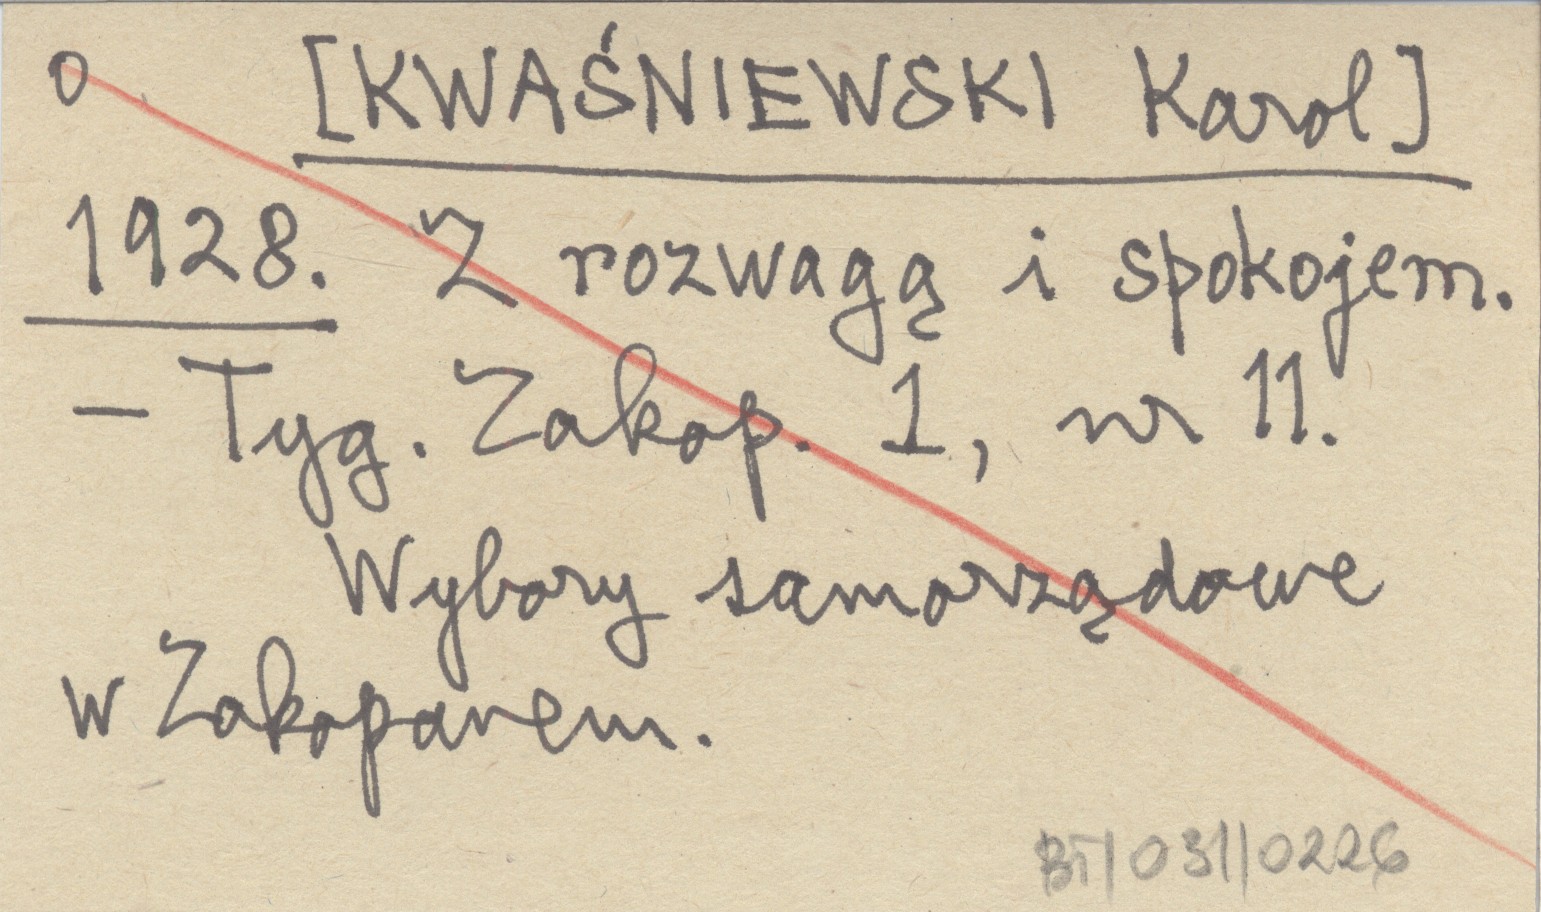 o [KWAŚNIEWSKI Karol]
1928. Z rozwagą i spokojem.
– Tyg. Zakop. 1, nr 11.
Wybory samorządowe
w Zakopanem.
BT/031/0226